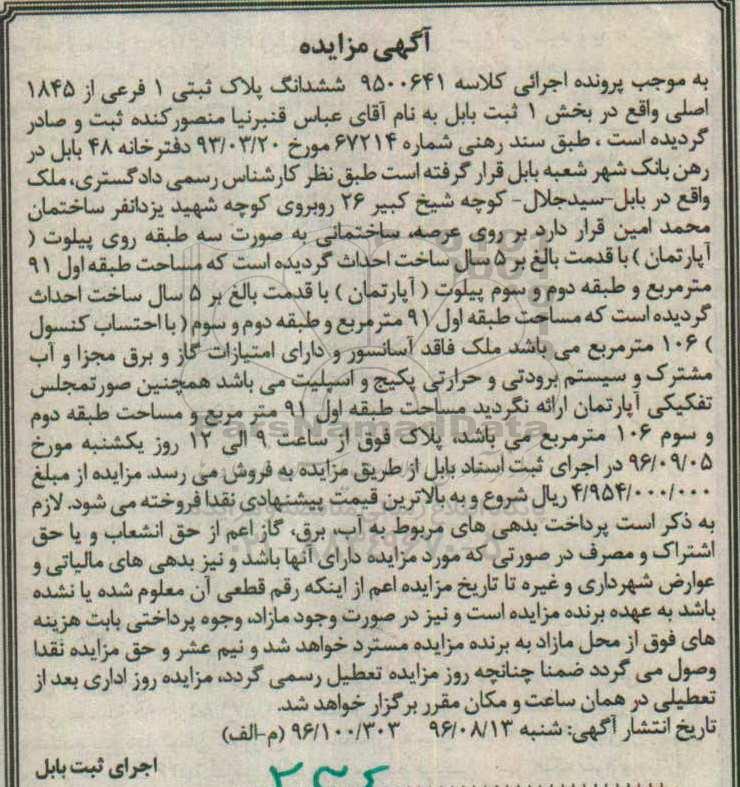 آگهی مزایده
به موجب پرونده اجرائی کلاسه ۹۵۰۰۶۴۱ ششدانگ پلاک ثبتی ۱ فرعی از ۱۸۴۵
اصلی واقع در بخش ۱ ثبت بابل به نام آقای عباس قنبرنیا منصورکنده ثبت و صادر
گردیده است ، طبق سند رهنی شماره ۶۷۲۱۴ مورخ ۹۳/۰۳/۲۰ دفترخانه ۴۸ بابل در
رهن بانک شهر شعبه بابل قرار گرفته است طبق نظر کارشناس رسمی دادگستری، ملک
واقع در بابل-سیدجلال- کوچه شیخ کبیر ۲۶ روبروی کوچه شهید یزدانفر ساختمان
محمد امین قرار دارد بر روی عرصه، ساختمانی به صورت سه طبقه روی پیلوت (
آپارتمان ) با قدمت بالغ بر ۵ سال ساخت احداث گردیده است که مساحت طبقه اول ۹۱
مترمربع و طبقه دوم و سوم پیلوت ( آپارتمان ) با قدمت بالغ بر ۵ سال ساخت احداث
گردیده است که مساحت طبقه اول ۹۱ مترمربع و طبقه دوم و سوم ( با احتساب کنسول
) ۱۰۶ مترمربع می باشد ملک فاقد آسانسور و دارای امتیازات گاز و برق مجزا و آب
مشترک و سیستم برودتی و حرارتی پکیج و اسپلیت می باشد همچنین صورتمجلس
تفکیکی آپارتمان ارائه نگردید مساحت طبقه اول ۹۱ متر مربع و مساحت طبقه دوم
و سوم ۱۰۶ مترمربع می باشد، پلاک فوق از ساعت ۹ الی ۱۲ روز یکشنبه مورخ
۹۶/۰۹/۰۵ در اجرای ثبت اسناد بابل از طریق مزایده به فروش می رسد. مزایده از مبلغ
۴/۹۵۴/۰۰۰/۰۰۰ ریال شروع و به بالاترین قیمت پیشنهادی نقدا فروخته می شود. لازم
به ذکر است پرداخت بدهی های مربوط به آب، برق، گاز اعم از حق انشعاب و یا حق
اشتراک و مصرف در صورتی که مورد مزایده دارای آنها باشد و نیز بدهی های مالیاتی و
عوارض شهرداری و غیره تا تاریخ مزایده اعم از اینکه رقم قطعی آن معلوم شده یا نشده
باشد به عهده برنده مزایده است و نیز در صورت وجود مازاد، وجوه پرداختی بابت هزینه
های فوق از محل مازاد به برنده مزایده مسترد خواهد شد و نیم عشر و حق مزایده نقدا
وصول می گردد ضمنا چنانچه روز مزایده تعطیل رسمی گردد، مزایده روز اداری بعد از
تعطیلی در همان ساعت و مکان مقرر برگزار خواهد شد.
تاریخ انتشار آگهی: شنبه ۹۶/۰۸/۱۳ ۹۶/۱۰۰/۳۰۳ (م-الف)
اجرای ثبت بابل
ParsNamadData